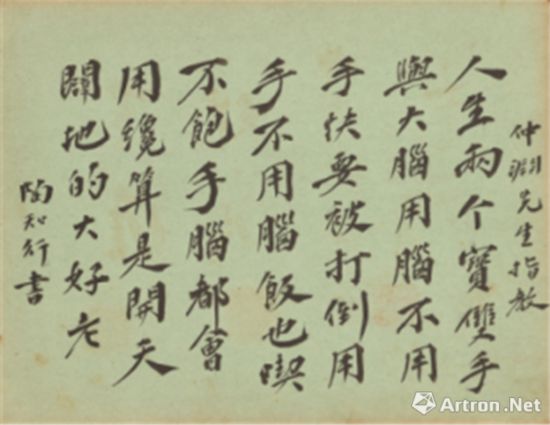 仲先生指教
人生兩个寶雙手
與大腦用腦不用
手快要被打倒用
手不用腦飯也喫
不飽手腦都會
用纔算是開天
闢地的大好老
陶知行書
Artron.Net